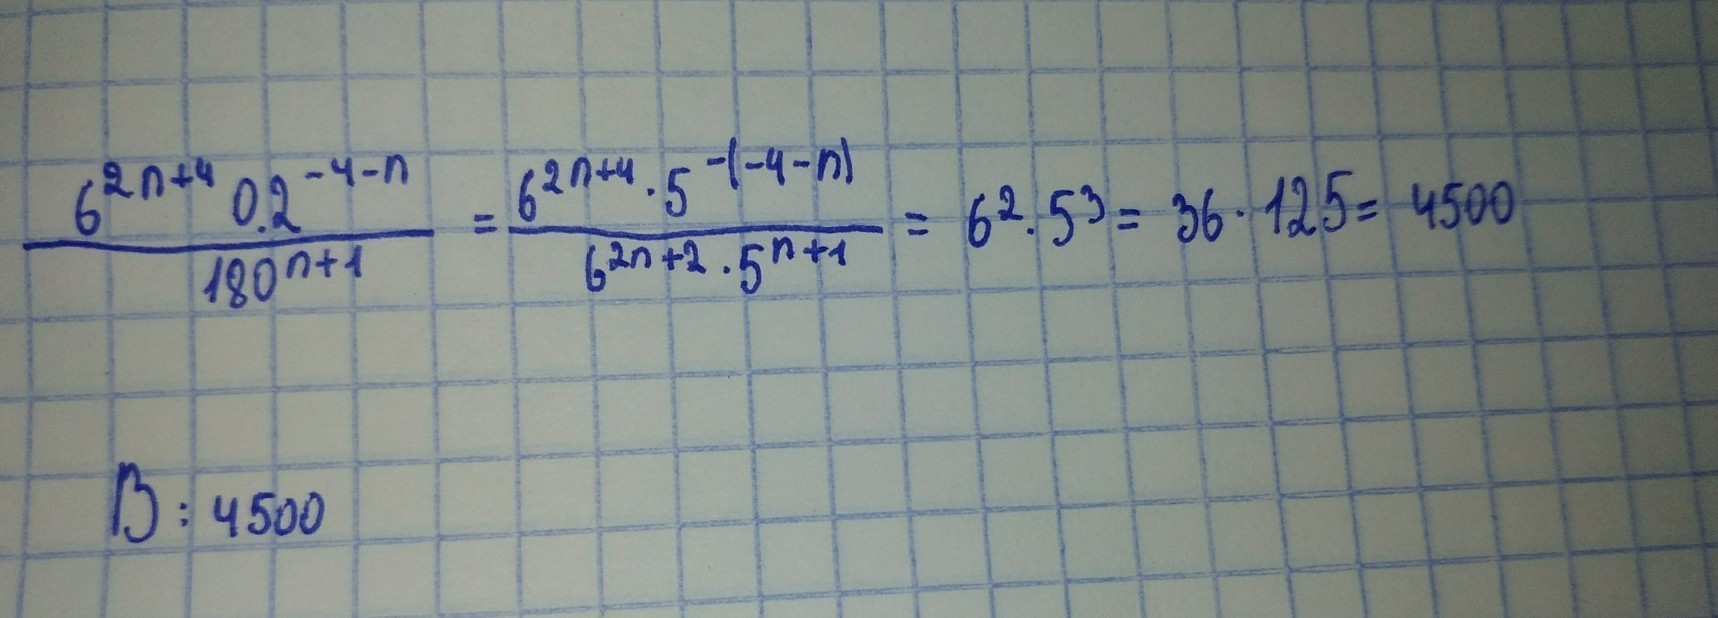 6^{2n+4} 0.2^{-4-n} / 180^{n+1} = 6^{2n+4} · 5^{-(-4-n)} / 6^{2n+2} · 5^{n+1} = 6^2 · 5^3 = 36 · 125 = 4500
В: 4500